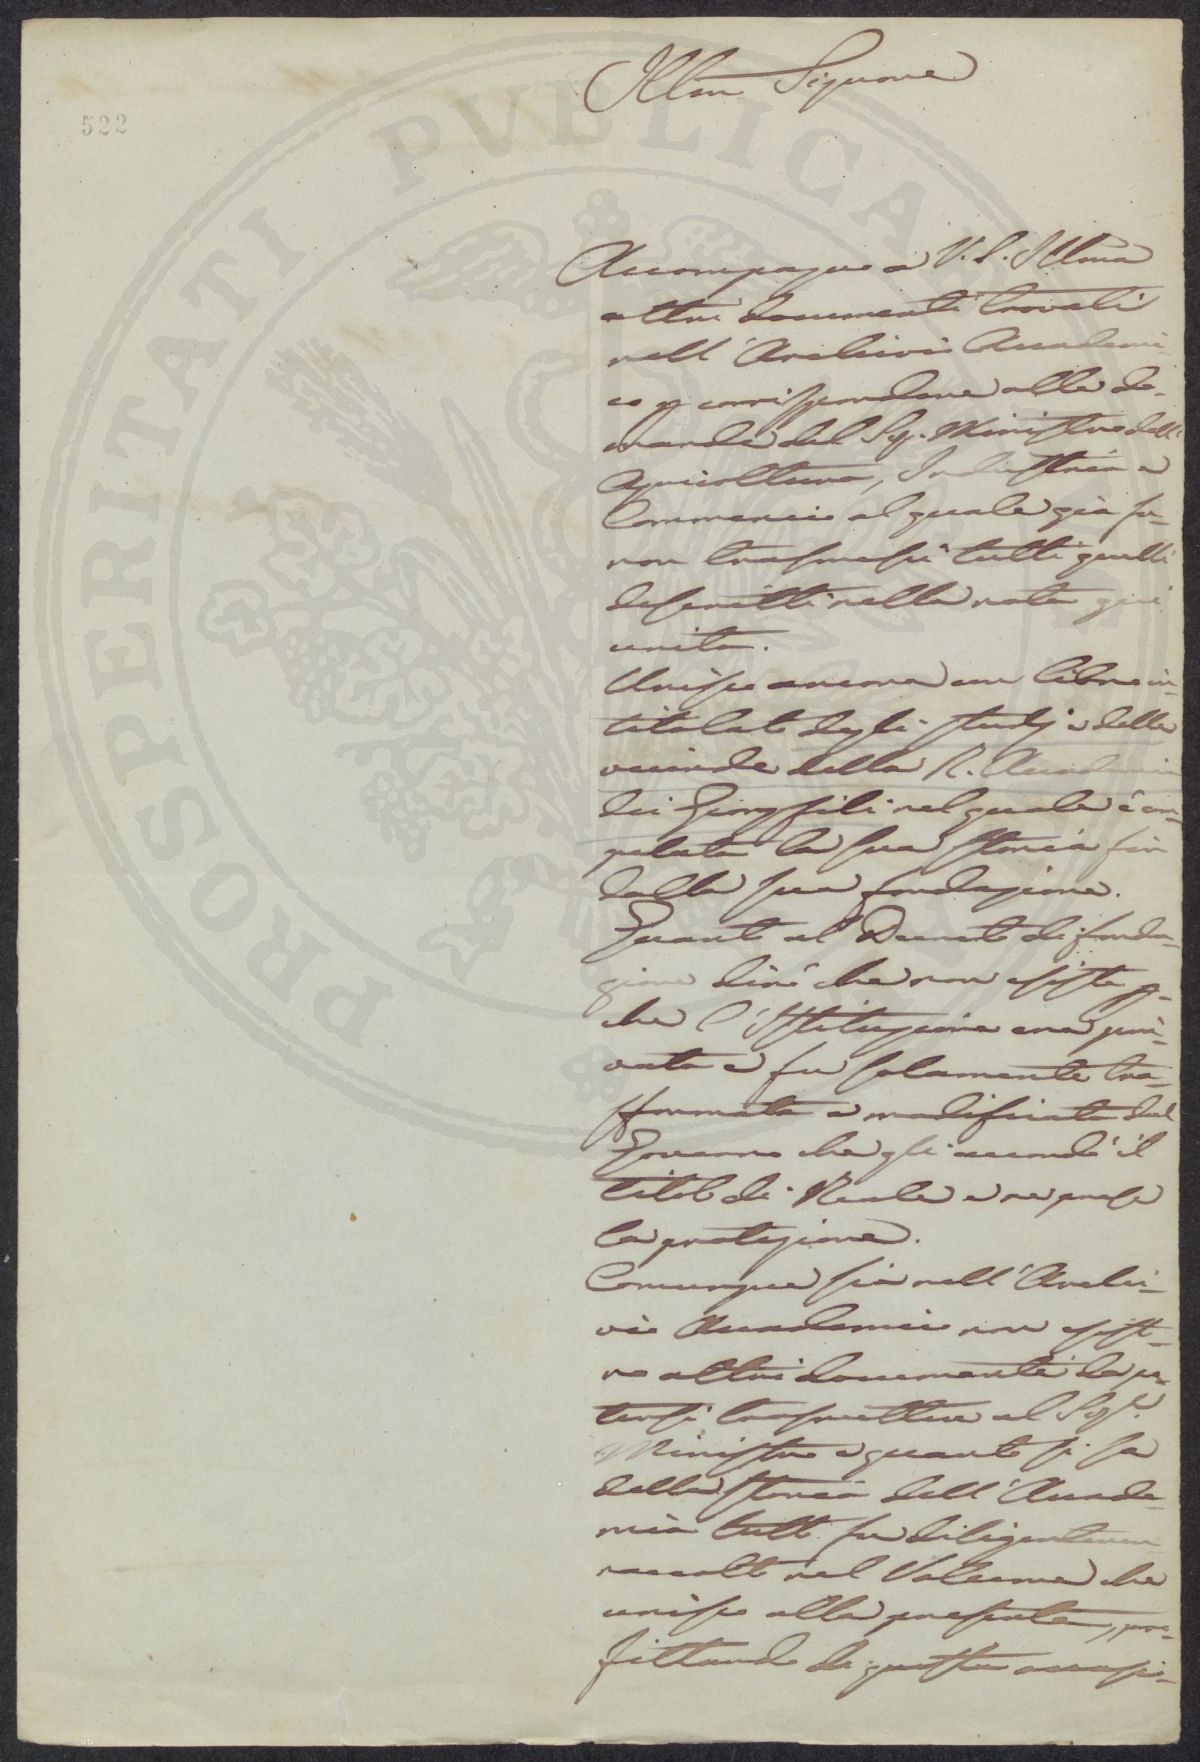 522
Illmo Signore
Accompagno a V. S. Illma
altri documenti trovati
nell'Archivio Accademi-
co p corrispondere alla do-
manda del Sig. Ministro dell'
Agricoltura, Industria e
Commercio al quale già fu-
ron trasmessi tutti quelli
descritti nella nota qui
unita.
Unisco ancora un libro in-
titolato degli studj e delle
vicende della R. Accademia
dei Georgofili nel quale è com-
pilata la sua storia fin
dalla sua fondazione.
Quanto al Decreto di fonda-
zione dirò che non esiste p-
chè l'Istituzione era pri-
vata e fu solamente tra-
sformata e modificata dal
Governo che gli accordò il
titolo di Reale e ne prese
la protezione.
Comunque sia nell'Archi-
vio Accademico non esisto-
no altri documenti da po-
tersi trasmettere al Sigr.
Ministro e quanto si sa
della storia dell'Accade-
mia tutto fu diligentemen
raccolto nel Volume che
unisco alla presente, pro-
fittando di questa occasi-
PROSPERITATI PUBLICAE